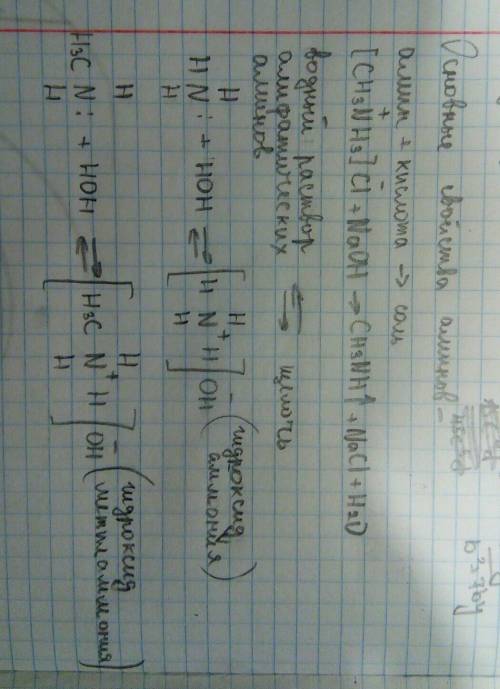 Основные свойства аминов –
амин + кислота → соль
[CH3NH3]⁺Cl⁻ + NaOH → CH3NH↑ + NaCl + H2O
водный раствор
алифатических ⇌ щёлочь
аминов
H H
H N: + HOH ⇌ [H N⁺ H] OH⁻ (гидроксид
H H аммония)
H H
H3C N: + HOH ⇌ [H3C N⁺ H] OH⁻ (гидроксид
H H метиламмония)